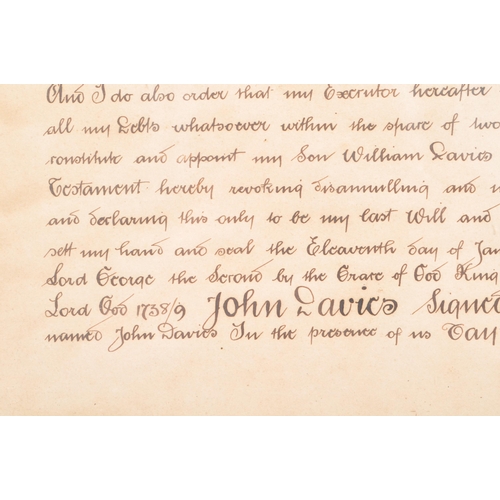 And I do also order that my Executor hereafter
all my Debts whatsoever within the space of two
constitute and appoint my Son William Davies
Testament hereby revoking disannulling and
and declaring this only to be my last Will and
sett my hand and seal the Eleaventh day of Jan
Lord George the Second by the Grace of God King
Lord God 1738/9 John Davies Signed
named John Davies In the presence of us